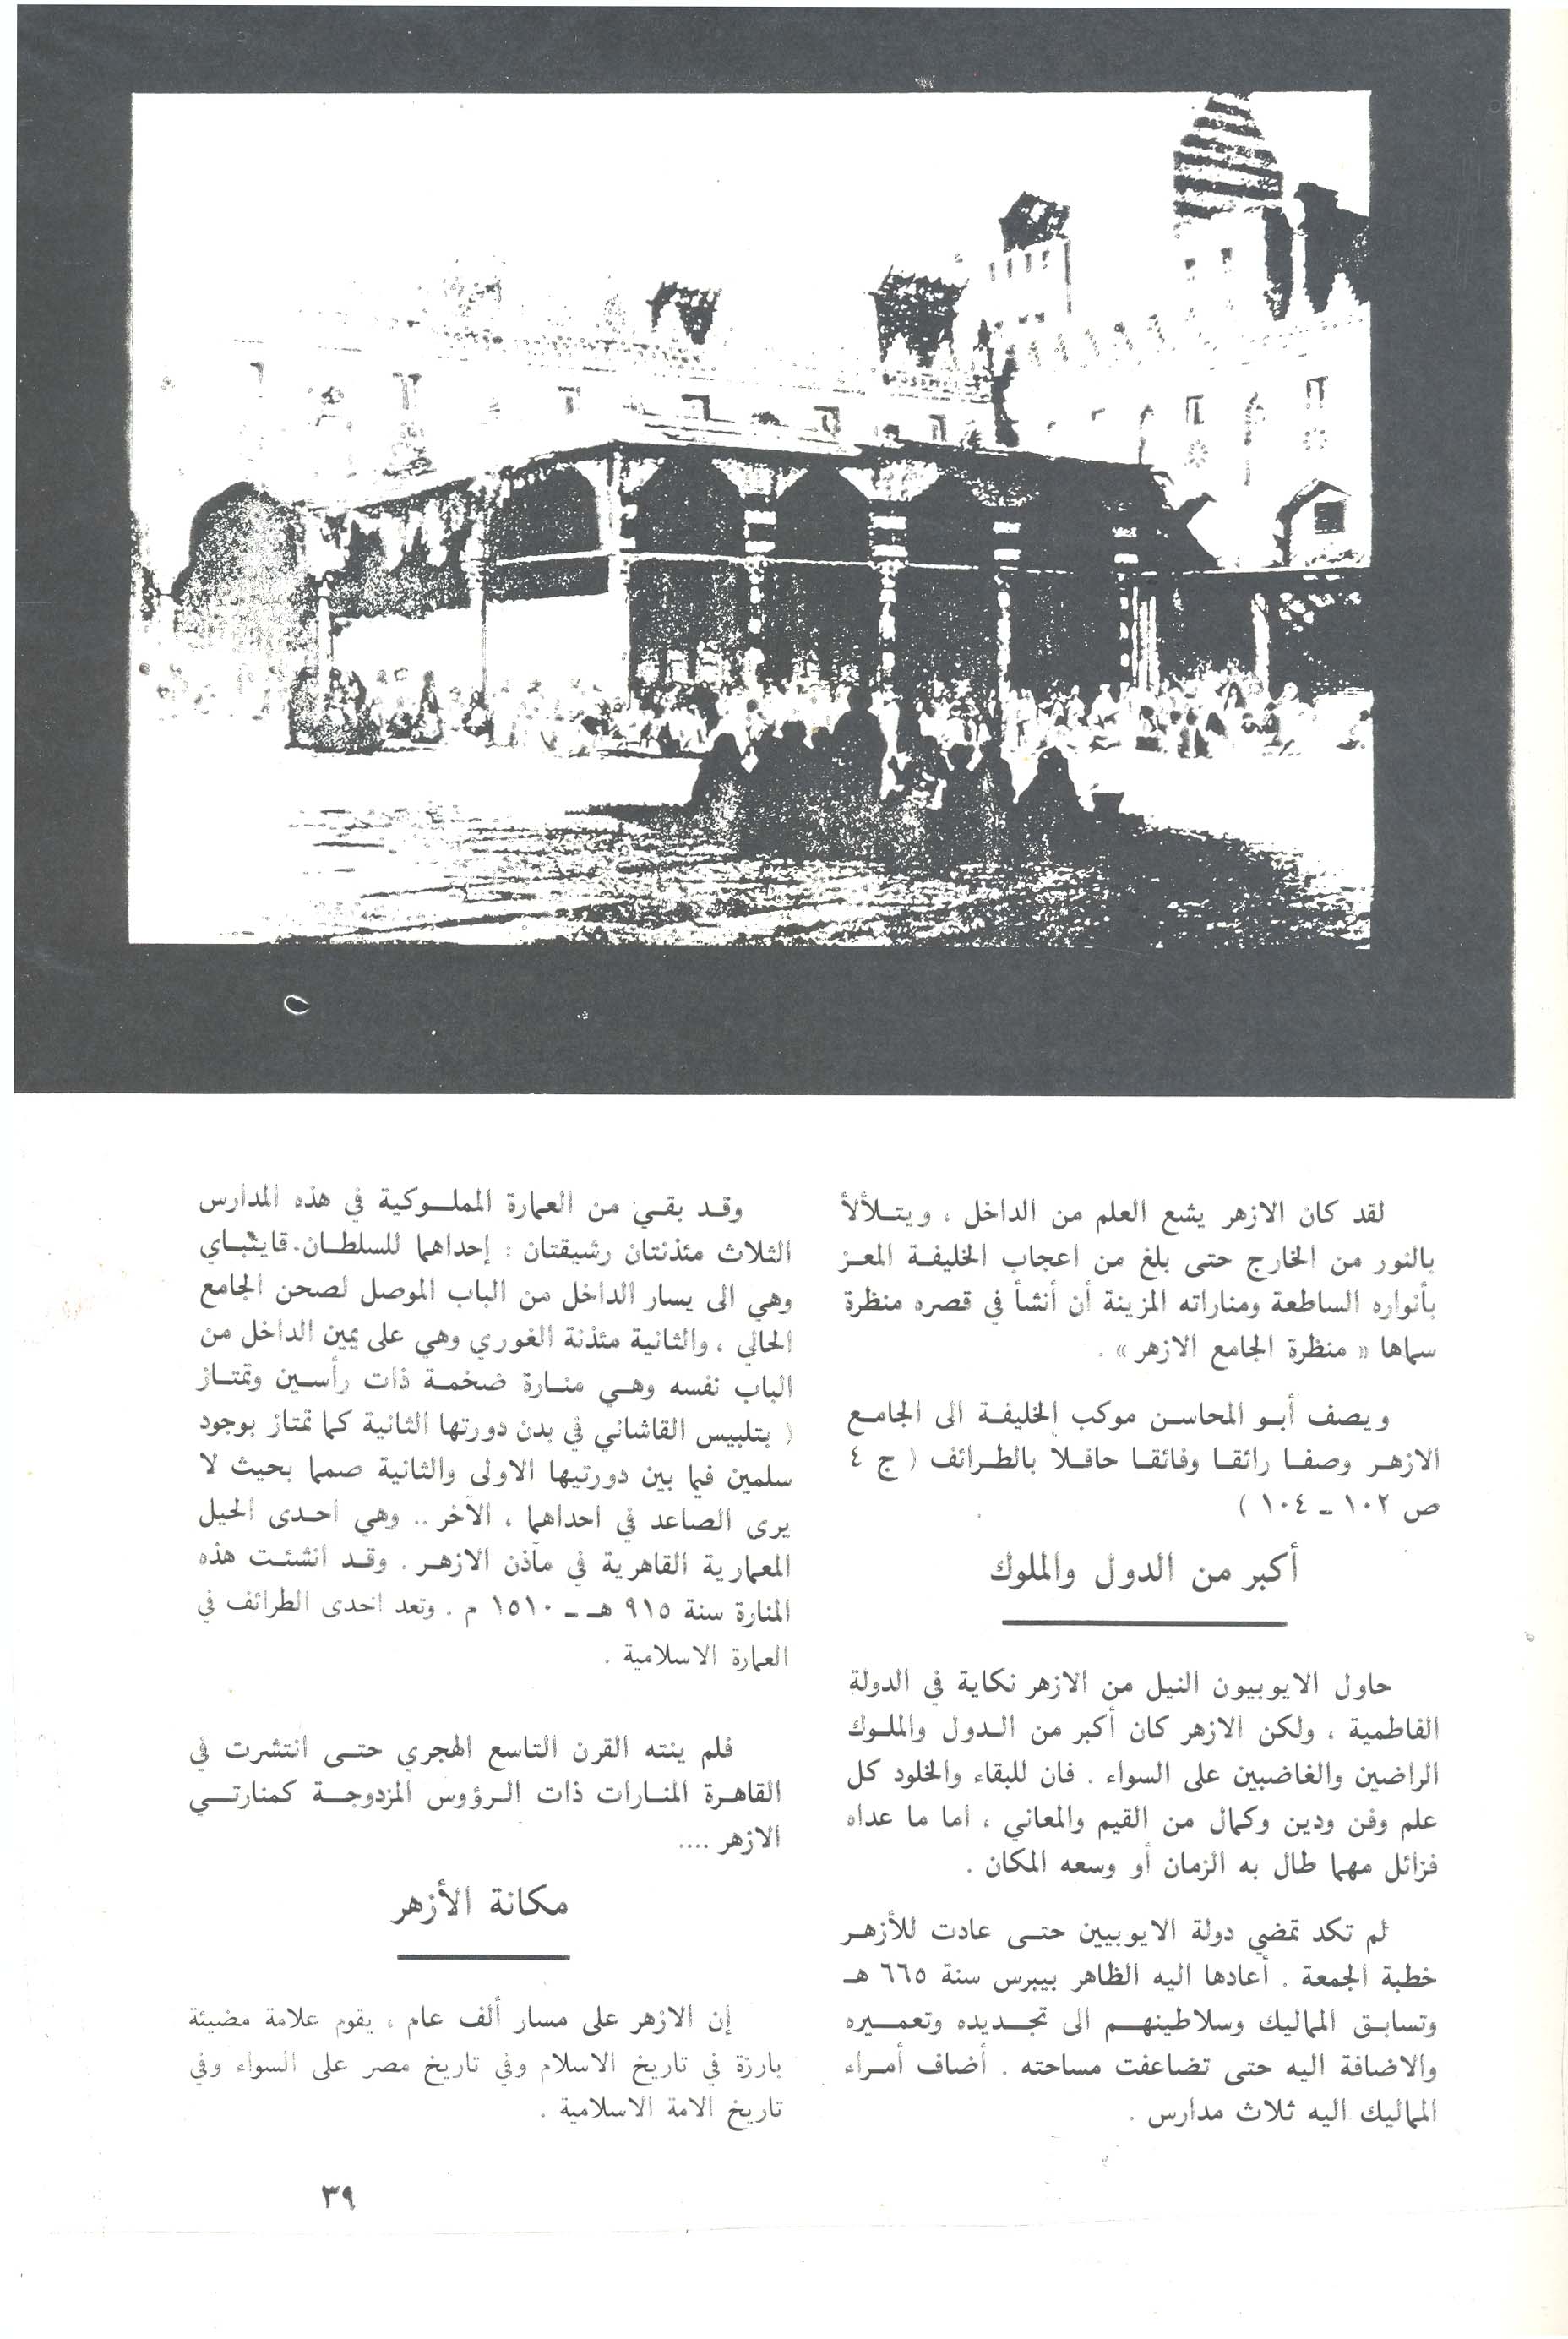 لقد كان الازهر يشع العلم من الداخل ، ويتـلألأ
بالنور من الخارج حتى بلغ من اعجاب الخليفـة المعـز
بأنواره الساطعة ومناراته المزينة أن أنشأ في قصره منظرة
سماها « منظرة الجامع الازهر » .
ويصف أبـو المحاسـن موكب الخليفـة الى الجامـع
الازهـر وصفـا رائقـا وفائقـا حافـلا بالطـرائف ( ج ٤
ص ١٠٢ ـ ١٠٤ )
أكبر من الدول والملوك
حاول الايوبيون النيل من الازهر نكاية في الدولة
الفاطمية ، ولكن الازهر كان أكبر من الـدول والملـوك
الراضين والغاضبين على السواء . فان للبقاء والخلود كل
علم وفن ودين وكمال من القيم والمعاني ، اما ما عداه
فزائل مهما طال به الزمان أو وسعه المكان .
لم تكد تمضي دولة الايوبيين حتـى عادت للأزهـر
خطبة الجمعة . أعادها اليه الظاهر بيبرس سنة ٦٦٥ هـ
وتسابـق المماليك وسلاطينهـم الى تجـديده وتعمـيره
والاضافة اليه حتى تضاعفت مساحته . أضاف أمـراء
المماليك اليه ثلاث مدارس .
وقـد بقـي من العمارة المملـوكية في هذه المدارس
الثلاث مئذنتان رشيقتان : إحداهما للسلطـان قايتبـاي
وهي الى يسار الداخل من الباب الموصل لصحن الجامع
الحالي ، والثانية مئذنة الغوري وهي على يمين الداخل من
الباب نفسه وهـي منـارة ضخمـة ذات رأسـين وتمتـاز
( بتلبيس القاشاني في بدن دورتها الثانية كما تمتاز بوجود
سلمين فيما بين دورتيها الاولى والثانية صمما بحيث لا
يرى الصاعد في احداهما ، الآخر .. وهي احـدى الحيل
المعمارية القاهرية في مآذن الازهـر . وقـد انشئـت هذه
المنارة سنة ٩١٥ هـ ـ ١٥١٠ م . وتعد احدى الطرائف في
العمارة الاسلامية .
فلم ينته القرن التاسع الهجري حتـى انتشرت في
القاهـرة المنـارات ذات الـرؤوس المزدوجـة كمنارتـي
الازهر ....
مكانة الأزهر
إن الازهر على مسار ألف عام ، يقوم علامة مضيئة
بارزة في تاريخ الاسلام وفي تاريخ مصر على السواء وفي
تاريخ الامة الاسلامية .
٣٩